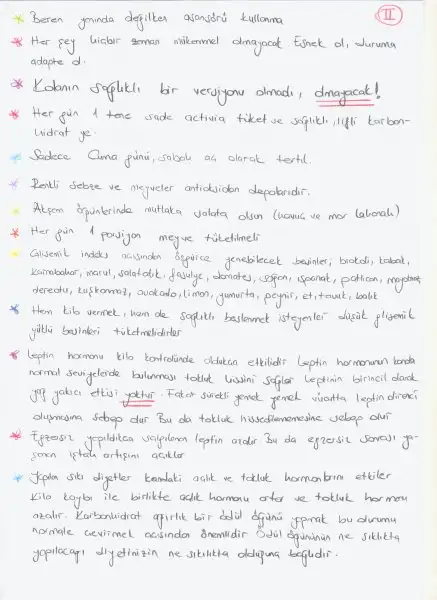 II
* Beren yanında değilken asansörü kullanma
* Her şey hiçbir zaman mükemmel olmayacak Esnek ol, duruma
adapte ol.
* Kolanın sağlıklı bir versiyonu olmadı, olmayacak!
* Her gün 1 tane sade activia tüket ve sağlıklı, lifli karbon-
hidrat ye.
* Sadece Cuma günü, sabah aç olarak tartıl.
* Renkli sebze ve meyveler antioksidan depolarıdır.
* Akşam öğünlerinde mutlaka salata olsun (havuç ve mor lahanalı)
* Her gün 1 porsiyon meyve tüketilmeli
* Glisemik indeks açısından özgürce yenebilecek besinler; brokoli, kabak,
karnabahar, marul, salatalık, fasulye, domates, soğan, ıspanak, patlıcan, maydanoz
dereotu, kuşkonmaz, avakado, limon, yumurta, peynir, et, tavuk, balık
* Hem kilo vermek, hem de sağlıklı beslenmek isteyenler düşük glisemik
yüklü besinleri tüketmelidirler
* Leptin hormonu kilo kontrolünde oldukça etkilidir Leptin hormonunun kanda
normal seviyelerde bulunması tokluk hissini sağlar Leptinin birincil olarak
yağ yakıcı etkisi yoktur. Fakat sürekli yemek yemek vücutta leptin direnci
oluşmasına sebep olur Bu da tokluk hissedilememesine sebep olur
* Egzersiz yapıldıkça salgılanan leptin azalır Bu da egzersiz sonrası ya-
şanan iştah artışını açıklar
* Yapılan sıkı diyetler kandaki açlık ve tokluk hormonlarını etkiler
Kilo kaybı ile birlikte açlık hormonu artar ve tokluk hormonu
azalır. Karbonhidrat ağırlık bir ödül öğünü yapmak bu durumu
normale çevirmek açısından önemlidir Ödül öğününün ne sıklıkta
yapılacağı diyetinizin ne sıkılıkta olduğuna bağlıdır.